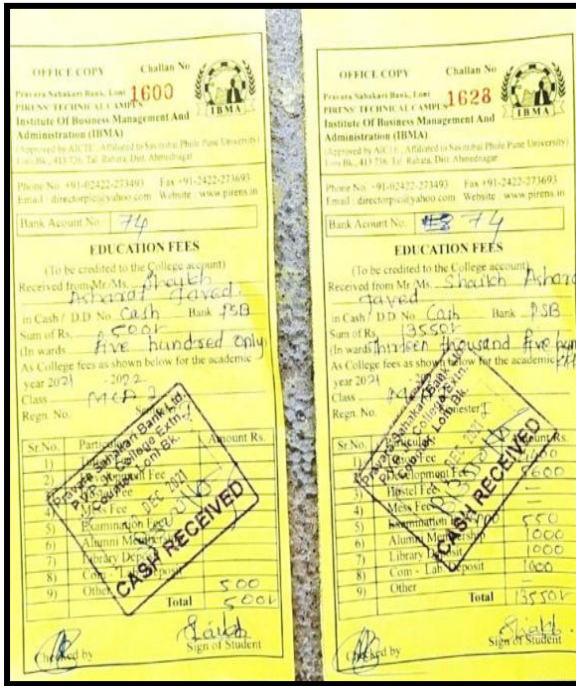 OFFICE COPY Challan No
Pravara Sahakari Bank, Loni 1600
PIRENS' TECHNICAL CAMPUS
Institute Of Business Management And
Administration (IBMA)
IBMA
(Approved by AICTE, Affiliated to Savitribai Phule Pune University)
Loni Bk., 413 736, Tal. Rahata, Dist. Ahmednagar
Phone No. +91-02422-273493 Fax +91-2422-273693
Email : directorpic@yahoo.com Website : www.pirens.in
Bank Acount No. 74
EDUCATION FEES
(To be credited to the College account)
Received from Mr./Ms. Shaikh
Javed
in Cash / D.D. No. Cash Bank PSB
Sum of Rs. 500/-
(In wards Five hundred only
As College fees as shown below for the academic
year 2021 -2022
Class MCA
Regn. No.
Sr.No. Amount Rs.
1)
2)
3)
4) Mess Fee
5) Examination Fee
6) Alumni Membership
7) Library Deposit
8) Com - Lab Deposit
9) Other 500
Total 500/-
Checked by Sign of Student
Pravara Sahakari Bank Ltd.
P.V.P. College Extn.
Counter, Loni Bk.
DEC 2021
CASH RECEIVED
OFFICE COPY Challan No
Pravara Sahakari Bank, Loni 1628
PIRENS' TECHNICAL CAMPUS
Institute Of Business Management And
Administration (IBMA)
IBMA
(Approved by AICTE, Affiliated to Savitribai Phule Pune University)
Loni Bk., 413 736, Tal. Rahata, Dist. Ahmednagar
Phone No. +91-02422-273493 Fax +91-2422-273693
Email : directorpic@yahoo.com Website : www.pirens.in
Bank Acount No. 74
EDUCATION FEES
(To be credited to the College account)
Received from Mr./Ms. Shaikh
Javed
in Cash / D.D. No. Cash Bank PSB
Sum of Rs. 13550/-
(In wards Thirteen thousand five
As College fees as shown below for the academic
year 2021
Class
Regn. No. Semester I
Sr.No. Amount Rs.
1) Fee
2) Development Fee
3) Hostel Fee
4) Mess Fee
5) Examination 550
6) Alumni Membership 1000
7) Library Deposit 1000
8) Com - Lab Deposit 1000
9) Other
Total 13550/-
Checked by Sign of Student
Pravara Sahakari Bank Ltd.
P.V.P. College Extn.
Counter, Loni Bk.
DEC 2021
CASH RECEIVED